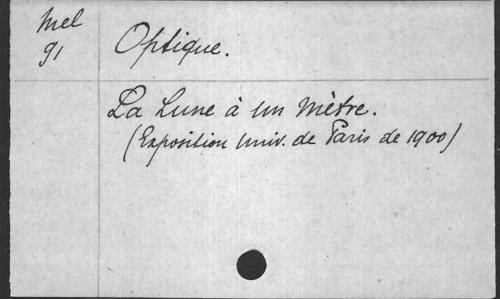 Mel
91
Optique.
La Lune à un Mètre.
(Exposition Univ. de Paris de 1900)